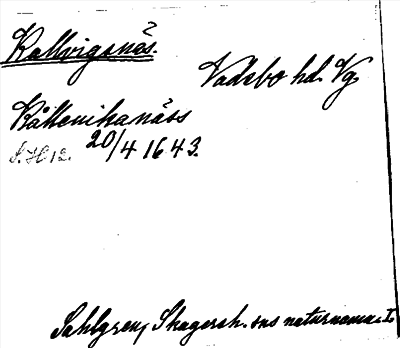 Kallviganäs.
Vadsbo hd. Vg.
Kållenikanäss
S. H 12. 20/4 1643.
Sahlgren, Skagersh. sns naturnamn. I.